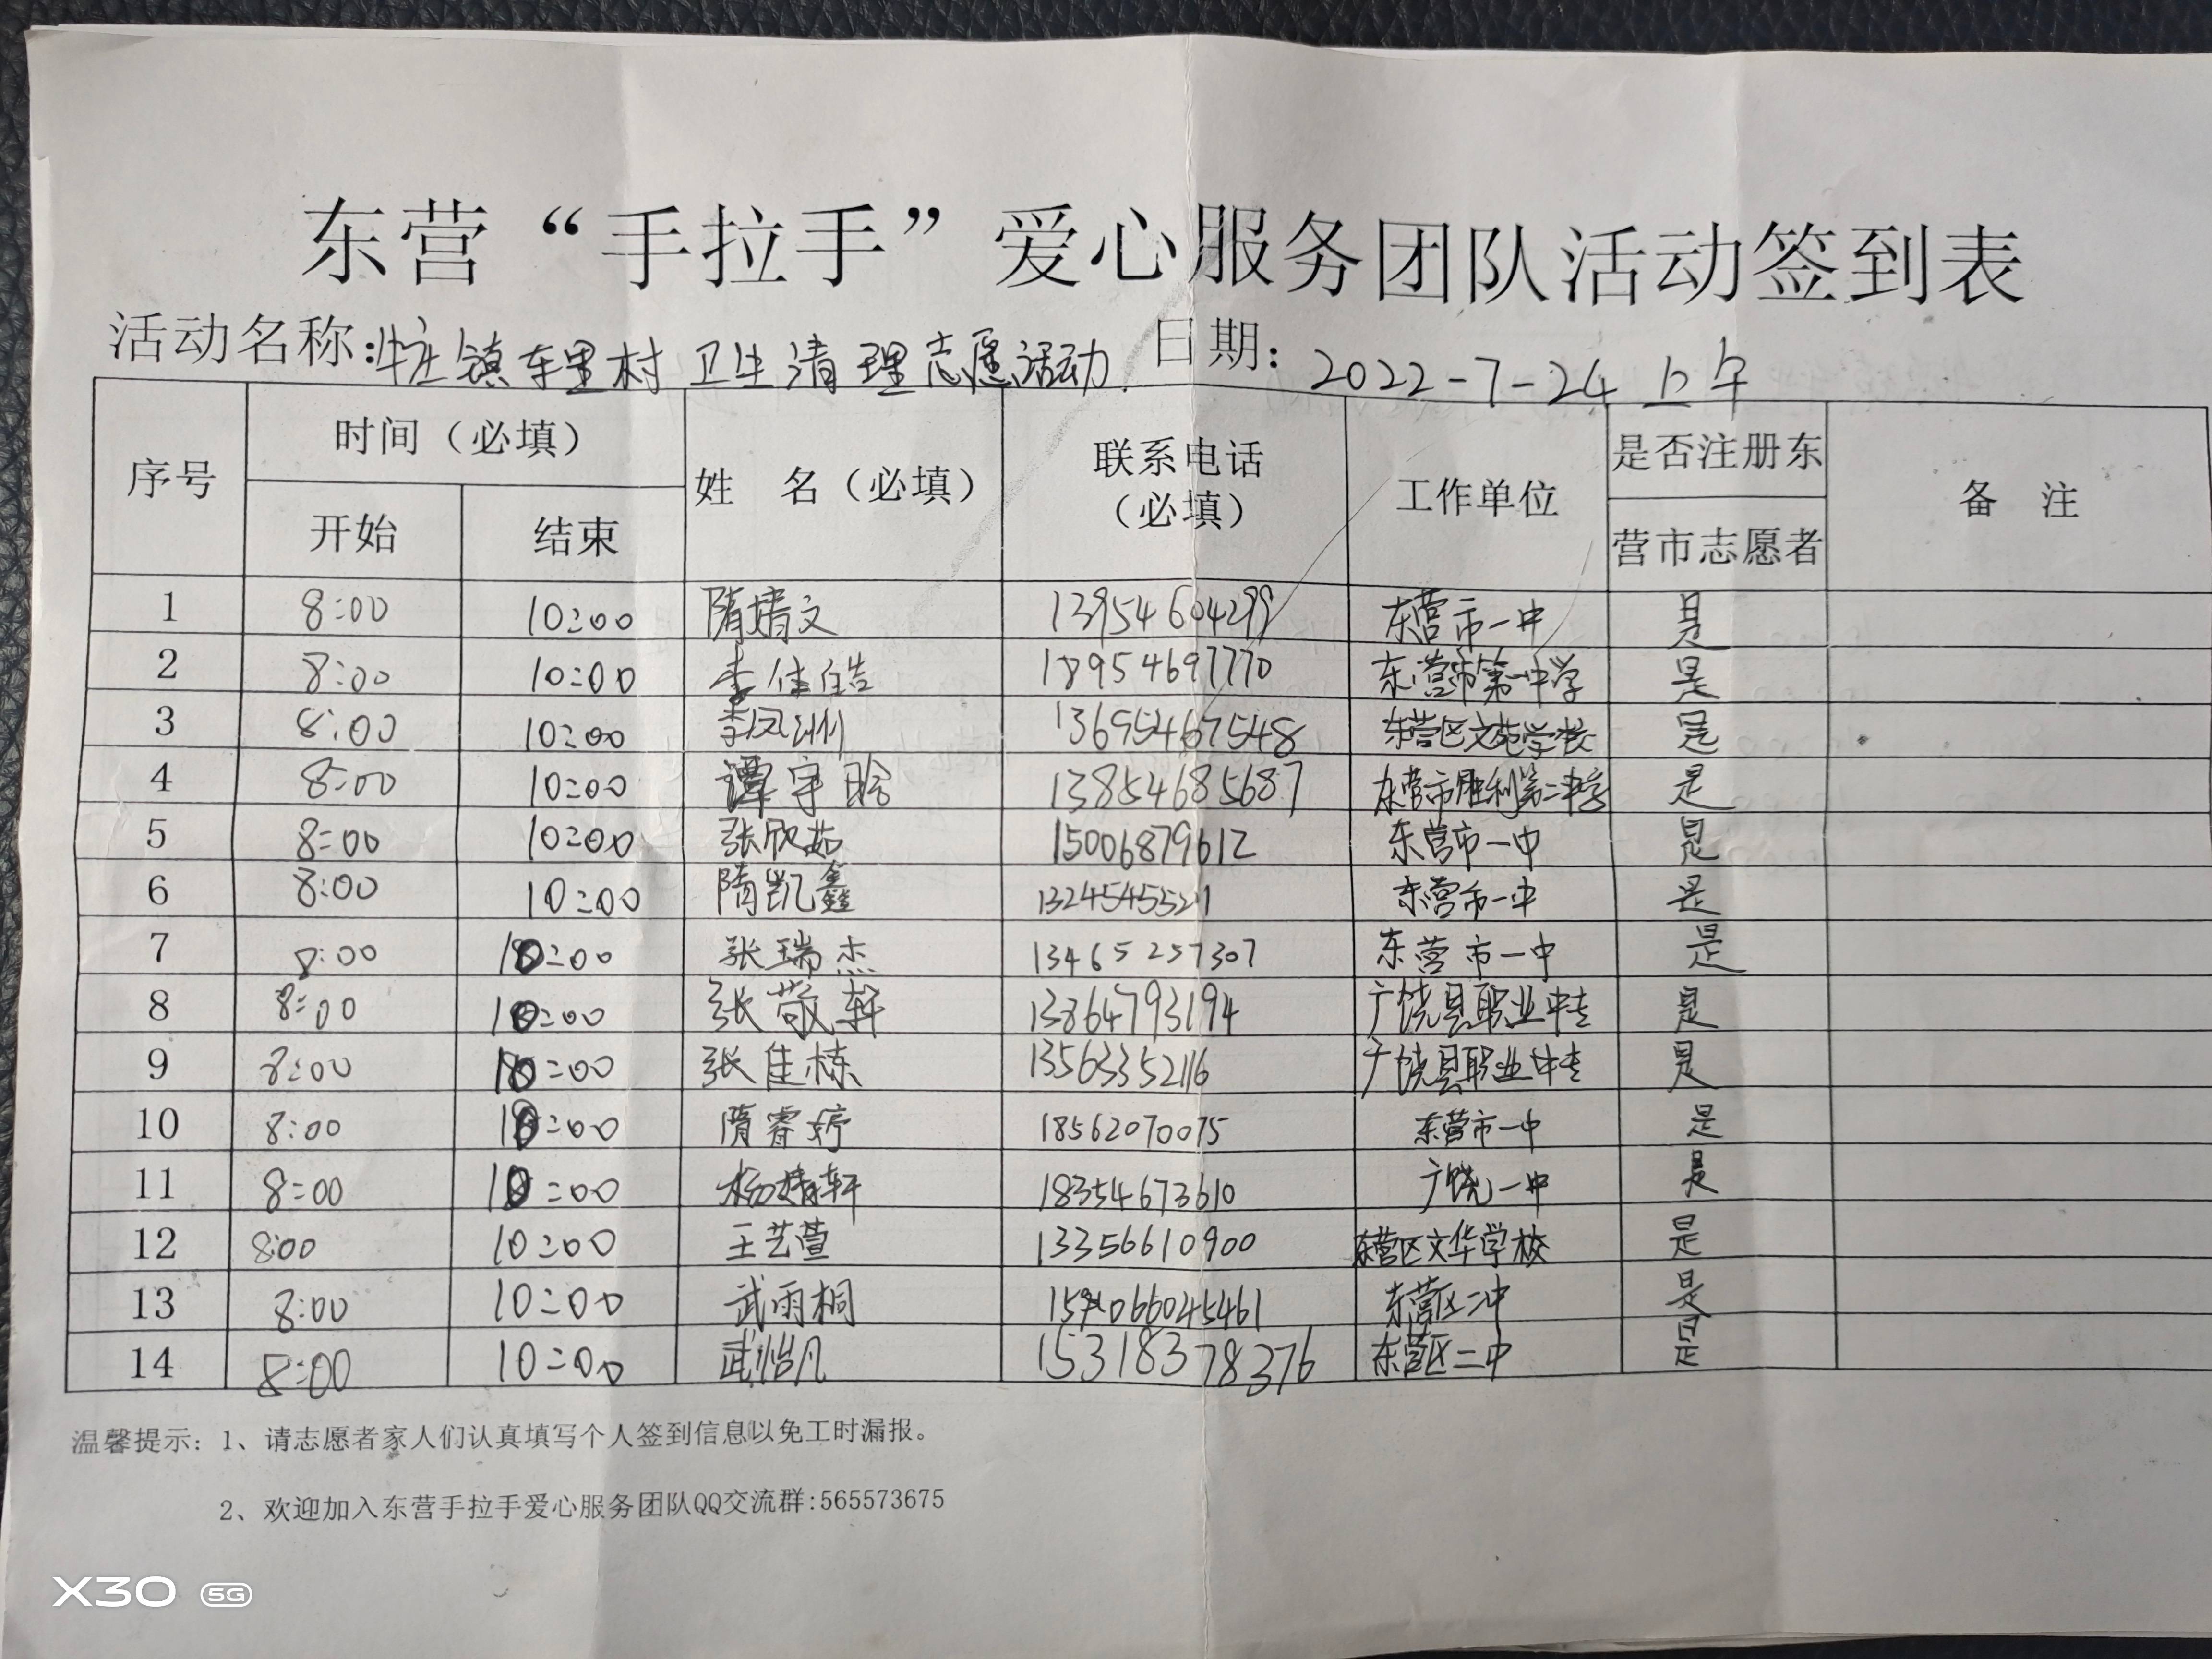 东营“手拉手”爱心服务团队活动签到表
活动名称:牛庄镇东里村 卫生清理志愿活动. 日期: 2022-7-24 上午
序号 时间（必填） 姓 名（必填） 联系电话（必填） 工作单位 是否注册东营市志愿者 备 注
开始 结束
1 8:00 10:00 隋婧文 13954604299 东营市一中 是
2 8:00 10:00 李佳皓 18954697770 东营市第一中学 是
3 8:00 10:00 李凤洲 13695467548 东营区文苑学校 是
4 8:00 10:00 谭宇晗 13854685687 东营市胜利第二中学 是
5 8:00 10:00 张欣茹 15006879612 东营市一中 是
6 8:00 10:00 隋凯鑫 13245455521 东营市一中 是
7 8:00 10:00 张瑞杰 13465257307 东营市一中 是
8 8:00 10:00 张敬轩 13864793194 广饶县职业中专 是
9 8:00 10:00 张佳栋 13563352116 广饶县职业中专 是
10 8:00 10:00 隋睿婷 18562070075 东营市一中 是
11 8:00 10:00 杨婧轩 18354673610 广饶一中 是
12 8:00 10:00 王艺萱 13356610900 东营区文华学校 是
13 8:00 10:00 武雨桐 东营区二中 是
14 8:00 10:00 武怡凡 15318378376 东营区二中 是
温馨提示: 1、请志愿者家人们认真填写个人签到信息以免工时漏报。
2、欢迎加入东营手拉手爱心服务团队QQ交流群:565573675
X30 5G